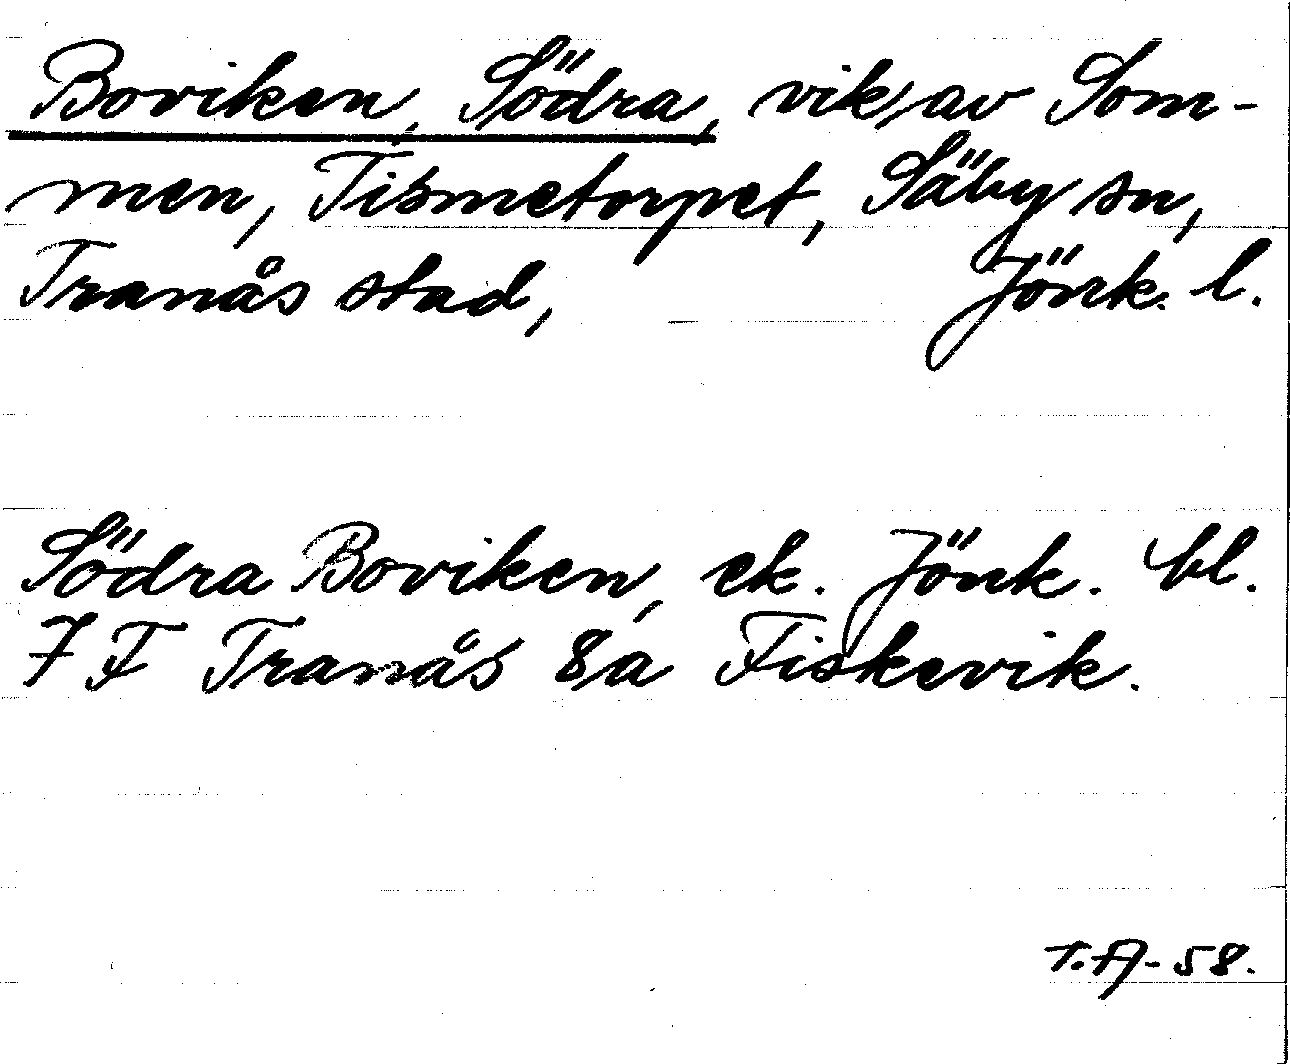 Boviken, Södra, vik av Som-
men, Tismetorpet, Säby sn,
Tranås stad, Jönk. l.
Södra Boviken, ek. Jönk. bl.
7 F Tranås 8a Fiskevik.
T.A-58.